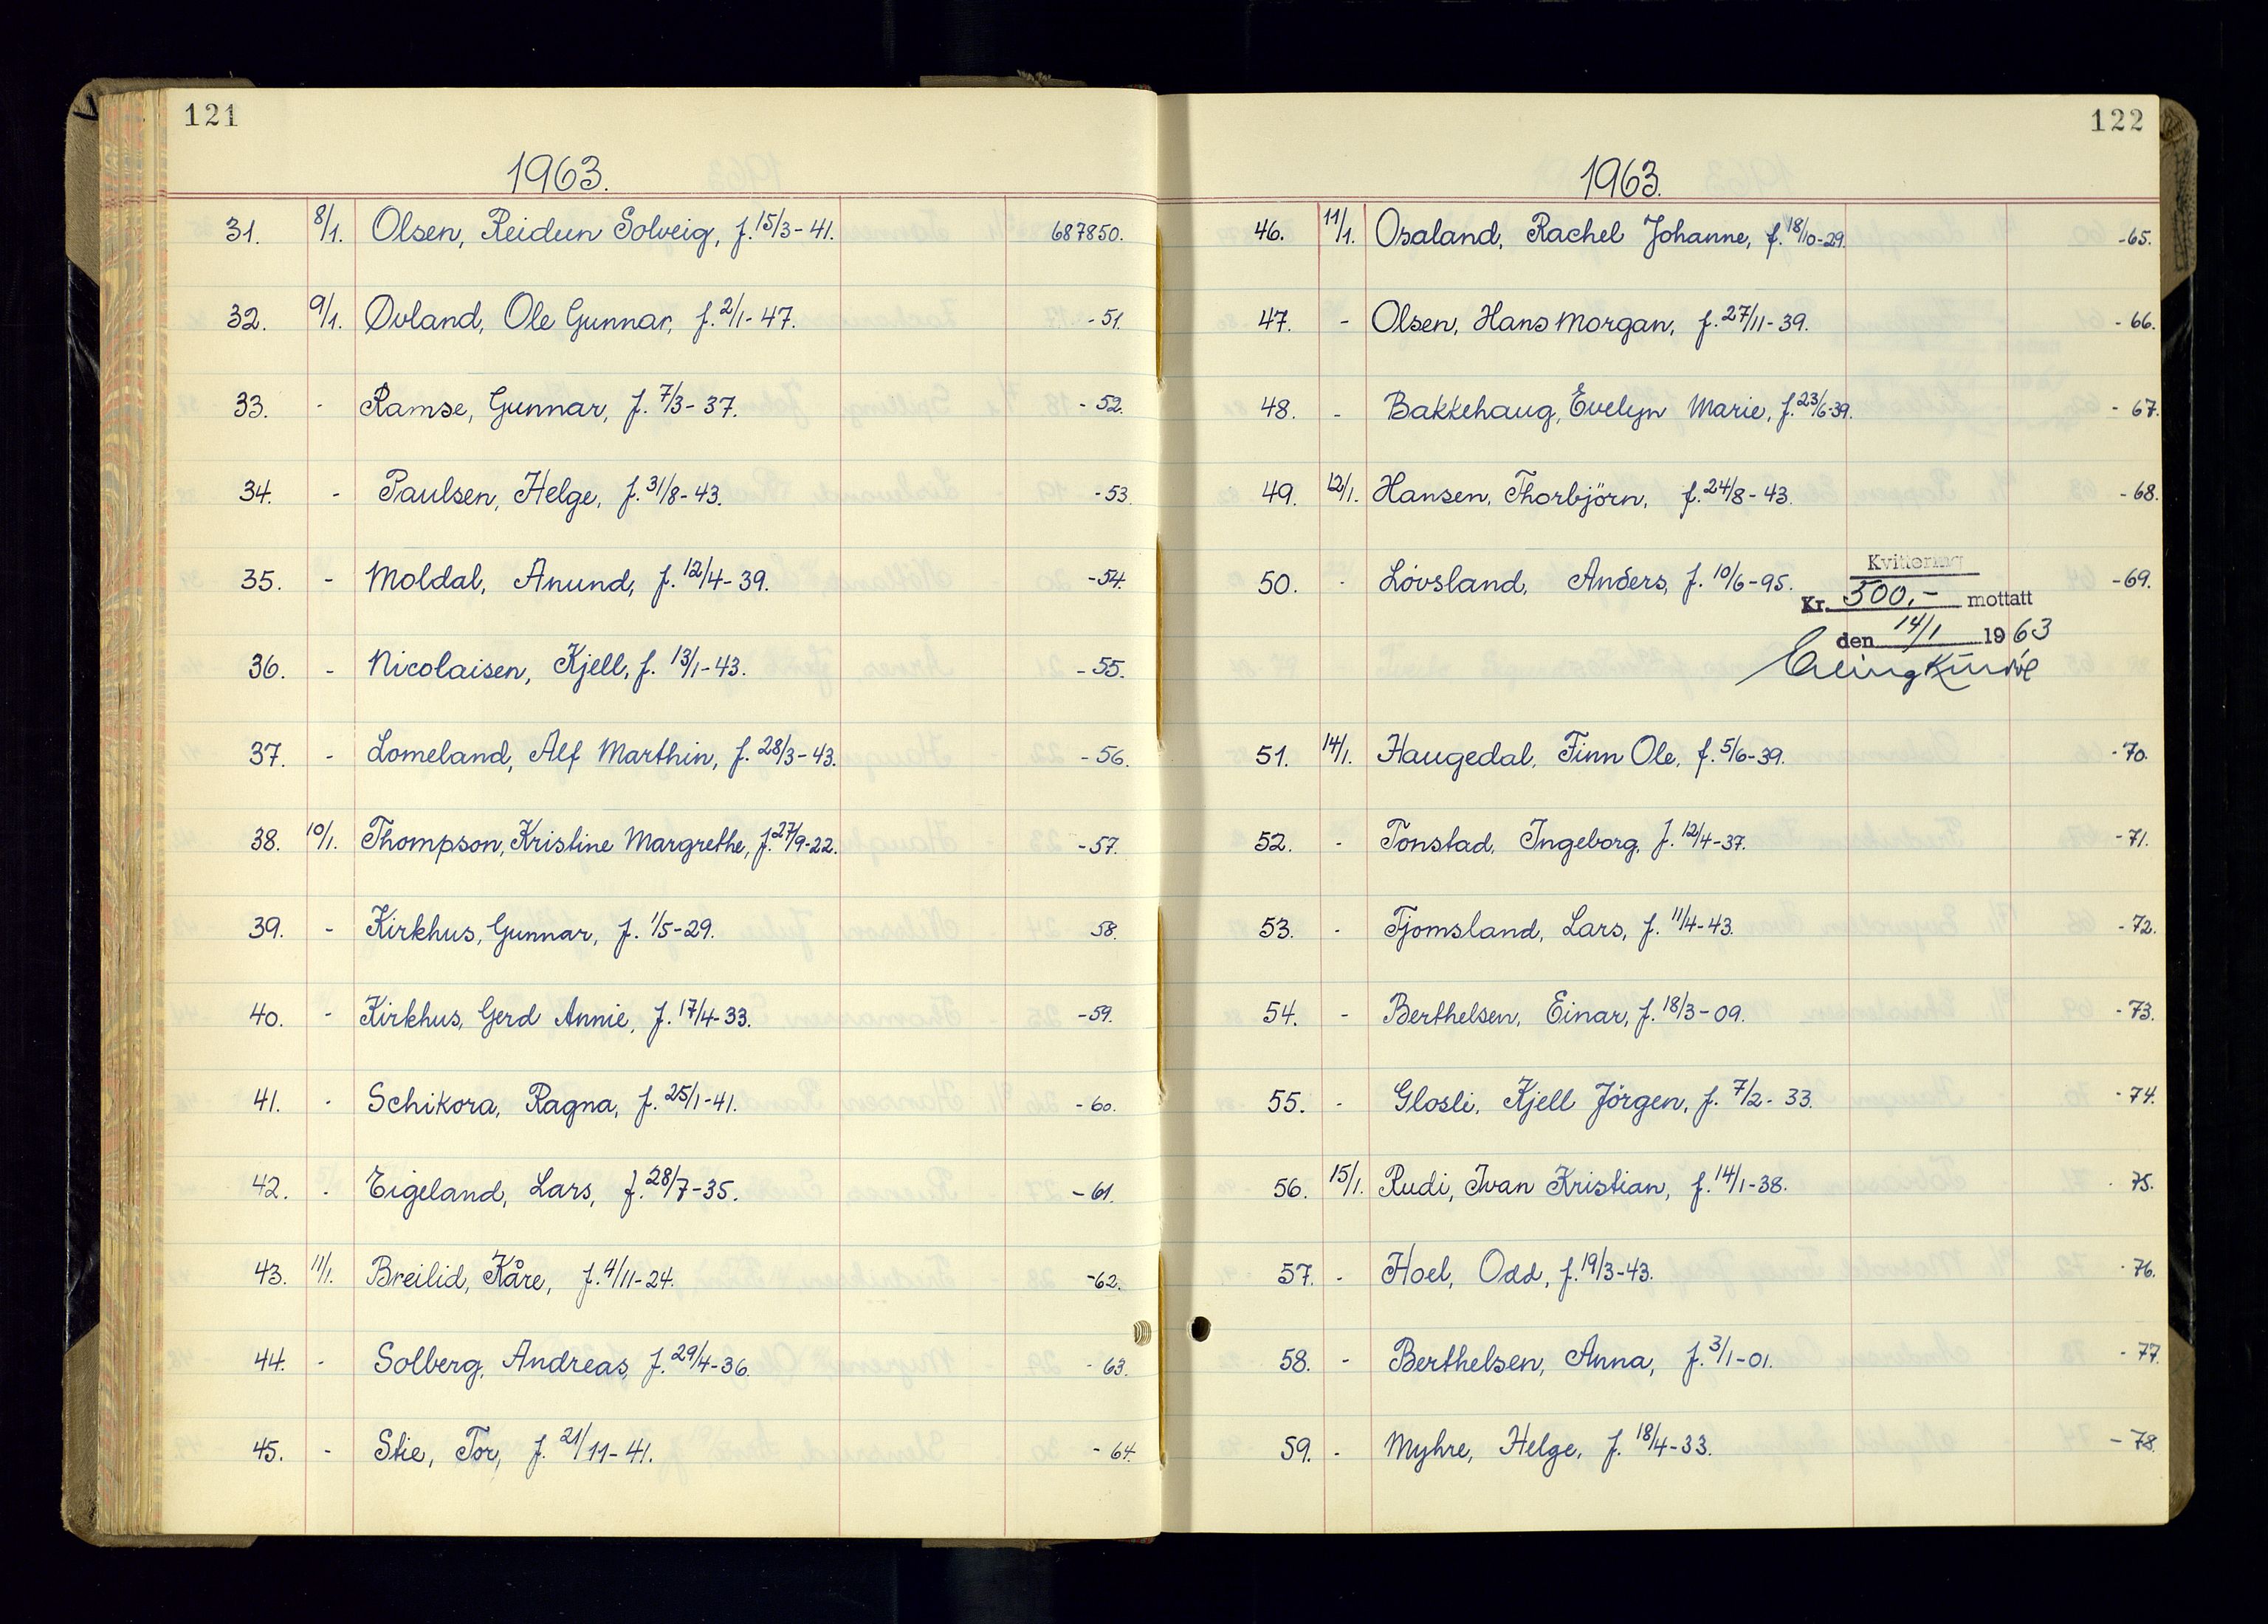 121
1963.
31. 8/1. Olsen, Reidun Solveig, f. 15/3-41. 687850.
32. 9/1. Øvland, Ole Gunnar, f. 2/1-47. -51.
33. - Ramse, Gunnar, f. 7/3-37. -52.
34. - Paulsen, Helge, f. 31/8-43. -53.
35. - Moldal, Anund, f. 12/4-39. -54.
36. - Nicolaisen, Kjell, f. 13/1-43. -55.
37. - Lomeland, Alf Marthin, f. 28/3-43. -56.
38. 10/1. Thompson, Kristine Margrethe, f. 27/9-22. -57.
39. - Kirkhus, Gunnar, f. 1/5-29. 58.
40. - Kirkhus, Gerd Annie, f. 17/4-33. -59.
41. - Schikora, Ragna, f. 25/1-41. -60.
42. - Eigeland, Lars, f. 28/7-35. -61.
43. 11/1. Breilid, Kåre, f. 4/11-24. -62.
44. - Solberg, Andreas, f. 29/4-36. -63.
45. - Stie, Tor, f. 21/11-41. -64.
122
1963.
46. 11/1. Osaland, Rachel Johanne, f. 18/10-29. -65.
47. - Olsen, Hans Morgan, f. 27/11-39. -66.
48. - Bakkehaug, Evelyn Marie, f. 23/6-39. -67.
49. 12/1. Hansen, Thorbjörn, f. 24/8-43. -68.
50. - Lövsland, Anders, f. 10/6-95. -69.
Kvittering
Kr. 500,- mottatt
den 14/1 1963
51. 14/1. Haugedal, Finn Ole, f. 5/6-39. -70.
52. - Tonstad, Ingeborg, f. 12/4-37. -71.
53. - Tjomsland, Lars, f. 11/4-43. -72.
54. - Berthelsen, Einar, f. 18/3-09. -73.
55. - Glosli, Kjell Jörgen, f. 7/2-33. -74.
56. 15/1. Rudi, Ivan Kristian, f. 14/1-38. 75.
57. - Hoel, Odd, f. 19/3-43. -76.
58. - Berthelsen, Anna, f. 3/1-01. -77.
59. - Myhre, Helge, f. 18/4-33. -78.